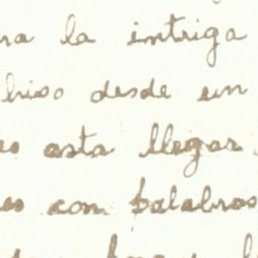 la intriga
hiso desde un
esta llegar
con palabras